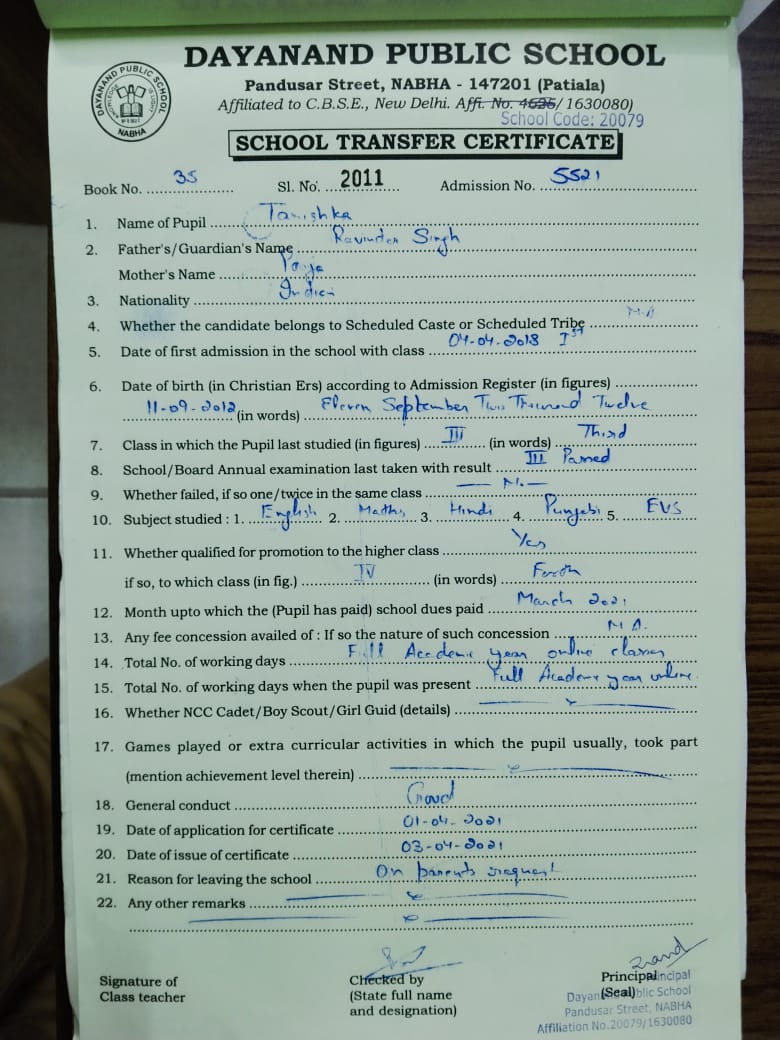 DAYANAND PUBLIC SCHOOL
DAYANAND PUBLIC SCHOOL
NABHA
Pandusar Street, NABHA - 147201 (Patiala)
Affiliated to C.B.S.E., New Delhi. Affi. No. 4625/ 1630080)
School Code: 20079
SCHOOL TRANSFER CERTIFICATE
Book No. 35 Sl. No. 2011 Admission No. 5521
1. Name of Pupil Tanishka
2. Father's/Guardian's Name Ravinder Singh
Mother's Name Pooja
3. Nationality Indian
4. Whether the candidate belongs to Scheduled Caste or Scheduled Tribe N.A
5. Date of first admission in the school with class 04-04-2018 Ist
6. Date of birth (in Christian Ers) according to Admission Register (in figures)
11-09-2012 (in words) Eleven September Two Thousand Twelve
7. Class in which the Pupil last studied (in figures) III (in words) Third
8. School/Board Annual examination last taken with result III Passed
9. Whether failed, if so one/twice in the same class
10. Subject studied : 1. English 2. Maths 3. Hindi 4. Punjabi 5. EVS
11. Whether qualified for promotion to the higher class Yes
if so, to which class (in fig.) IV (in words) Fourth
12. Month upto which the (Pupil has paid) school dues paid March 2021
13. Any fee concession availed of : If so the nature of such concession N.A.
14. Total No. of working days Full Academic year online classes
15. Total No. of working days when the pupil was present Full Academic year online
16. Whether NCC Cadet/Boy Scout/Girl Guid (details)
17. Games played or extra curricular activities in which the pupil usually, took part
(mention achievement level therein)
18. General conduct Good
19. Date of application for certificate 01-04-2021
20. Date of issue of certificate 03-04-2021
21. Reason for leaving the school On parents request
22. Any other remarks
Signature of
Class teacher
Checked by
(State full name
and designation)
Principal
(Seal)
Principal
Dayanand Public School
Pandusar Street, NABHA
Affiliation No.20079/1630080